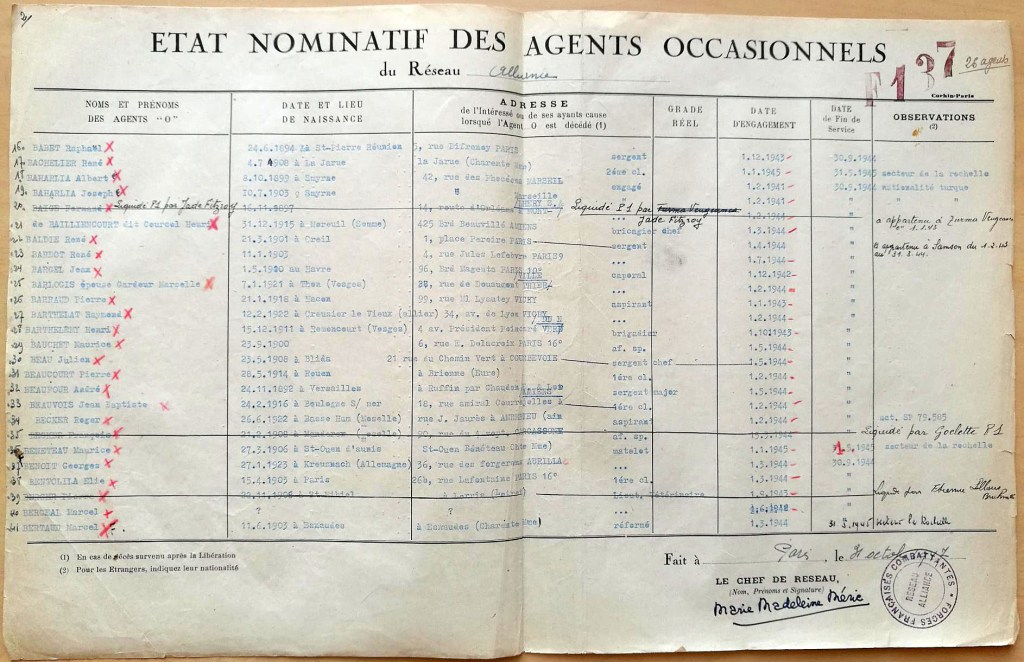 ETAT NOMINATIF DES AGENTS OCCASIONNELS
du Réseau Alliance
F1 37
26 agents
Corbin-Paris
NOMS ET PRÉNOMS DES AGENTS "O"
DATE ET LIEU DE NAISSANCE
ADRESSE de l'Intéressé ou de ses ayants cause lorsqu'il l'Agent O est décédé (1)
GRADE RÉEL
DATE D'ENGAGEMENT
DATE de Fin de Service
OBSERVATIONS (2)
16. BABET Raphaël 24.6.1894 à St-Pierre Réunion 5, rue Difreney PARIS 1.12.1943 30.9.1944
17. BACHELIER René 4.7.1908 à La Jarse la Jarse (Charente sergent
18 BAHARLIA Albert 8.10.1899 à Smyrne 42, rue des Phocéens MARSEIL 2ème cl. 1.1.1945 secteur de la rochelle
19. BAHARLIA Joseph 20.7.1903 à Smyrne " engagé 1.2.1941 30.9.1944 nationalité turque
20. Liquidé P1 par Jade Fitzroy 16.11.1897 14, route d'Orléans Liquidé P1 par Jade Fitzroy 1.2.1944
21 de RAILLIENCOURT dit Courcel Henri 31.12.1915 à Moreuil (Somme) 425 Brd Beauvillé AMIENS brigadier chef 1.2.1944 a appartenu à Turma Vengeance
22 BALESE René 21.3.1901 à Creil 1, place Pereire PARIS sergent 1.4.1944 appartenu à Samson du 1.2.43 au 31.3.44.
23 BARDOT René 11.1.1903 4, rue Jules Lefebvre PARIS 9 ... 1.7.1944
24 BARGEL Jean 1.5.1910 au Havre 96, Brd Magenta PARIS 10° caporal 1.12.1942
25 BARLOGIS épouse Cardeur Marcelle 7.1.1921 à Thea (Vosges) 38, rue de Douaumont THIER ... 1.2.1944
26 BARRAUD Pierre 21.1.1918 à Macon 99, rue Ml Lyautey VICHY aspirant 1.1.1943
27 BARTHELAT Raymond 12.2.1922 à Creusier le Vieux (allier) 34, av. de Lyon VICHY ... 1.2.1944
28 BARTHELÉMY Henri 15.12.1911 à Remoncourt (Vosges) 4 av. Président Poincaré VERD brigadier 1.10.1943
29 BAUCHET Maurice 23.9.1900 6, rue E. Delacroix PARIS 16° af. sp. 1.3.1944
30 BEAU Julien 23.5.1908 à 21 rue du Chemin Vert à COURBEVOIE sergent chef 1.5.1944
31 BEAUCOURT Pierre 28.5.1914 à Rouen à Brienne (Eure) 1ére cl. 1.2.1944
32 BEAUFOUR André 24.11.1892 à Versailles à Ruffin par Chaudes sergent major 1.3.1944
33 BEAUVOIS Jean Baptiste 24.2.1916 à Boulogne S/ mer 18, rue Amiral Courbe 1ére cl. 1.2.1944
34 BECKER Roger 26.6.1922 à Basse Ham (Moselle) rue J. Jaurès à AMBERIEU (ain aspirant 1.2.1944 nat. SP 79.585
35 af. sp. Liquidé par Goélette P1
36 BENETEAU Maurice 27.3.1906 à St-Ouen d'aunis St-Ouen Bénéteau (Chte Mme) matelot 1.1.1945 1.5.1945 secteur de la rochelle
37 BENOIT Georges 27.1.1923 à Kreuznach (Allemagne) 36, rue des forgerons AURILLAC ... 1.3.1944 30.9.1944
38 BENTOLILA Elie 15.4.1903 à Paris 26b, rue Lafontaine PARIS 16° ... 1.3.1944
39 Lieut. Vétérinaire 1.9.1943 Liquidé par Etienne
40 BERGEAL Marcel ? ? ... 1.6.1942
41 BERTAUD Marcel 11.6.1903 à Esnandes à Esnandes (Charente Mme) réformé 1.3.1944 31 5.1945 secteur la Rochelle
(1) En cas de décès survenu après la Libération
(2) Pour les Etrangers, indiquez leur nationalité
Fait à Paris, le 31 octob
LE CHEF DE RESEAU,
(Nom, Prénoms et Signature)
Marie Madeleine Méric
FORCES FRANÇAISES COMBATTANTES
RESEAU ALLIANCE